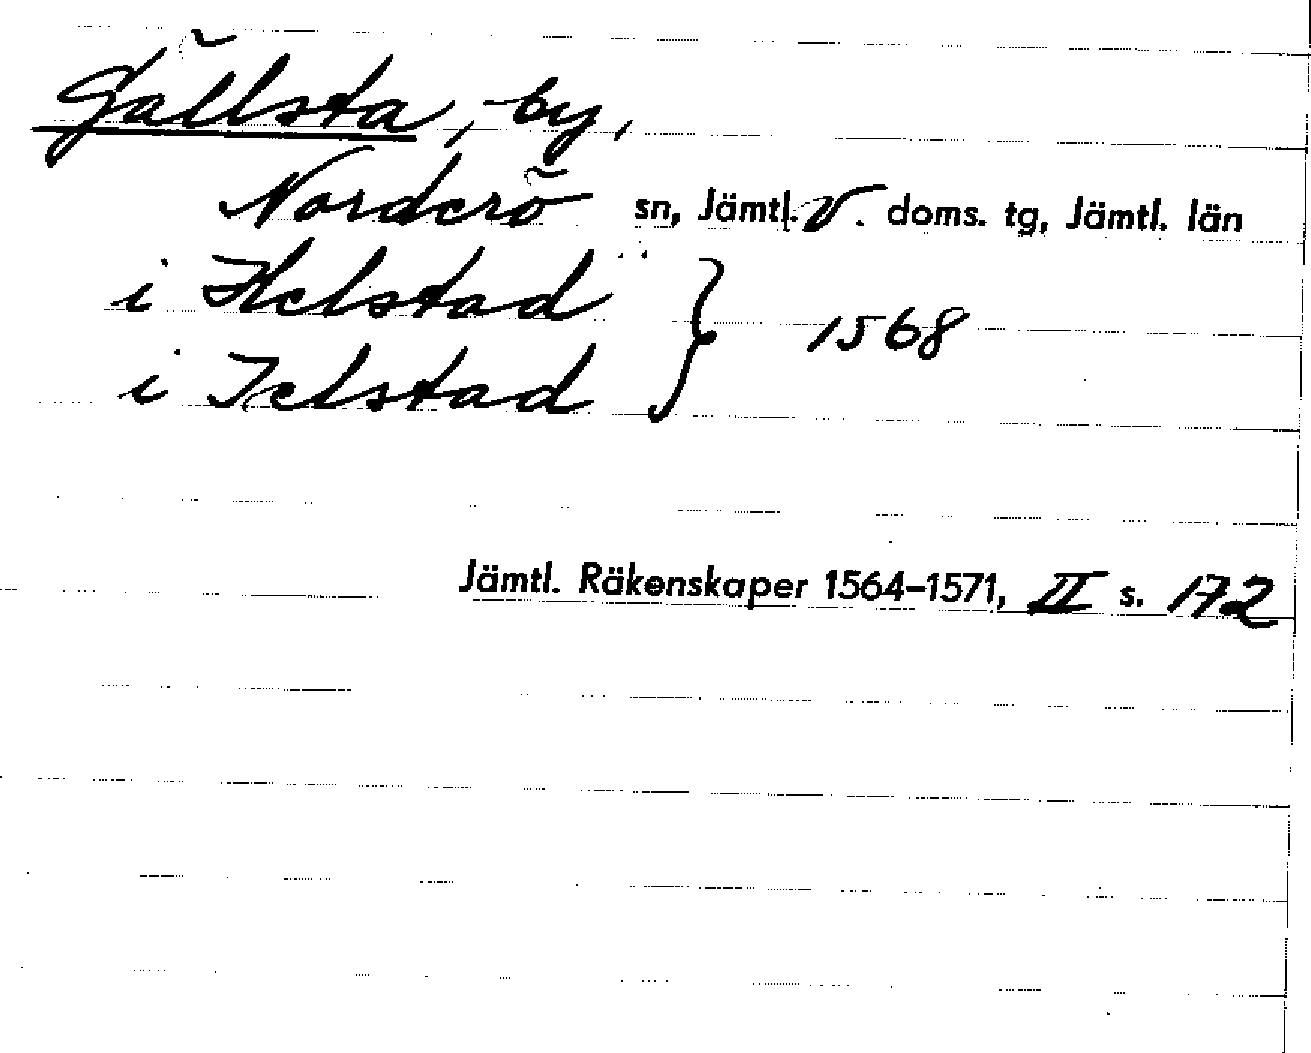 Gällsta, by,
Norderö sn, Jämtl. V. doms. tg, Jämtl. län
i Helstad
i Jelstad } 1568
Jämtl. Räkenskaper 1564–1571, II s. 172